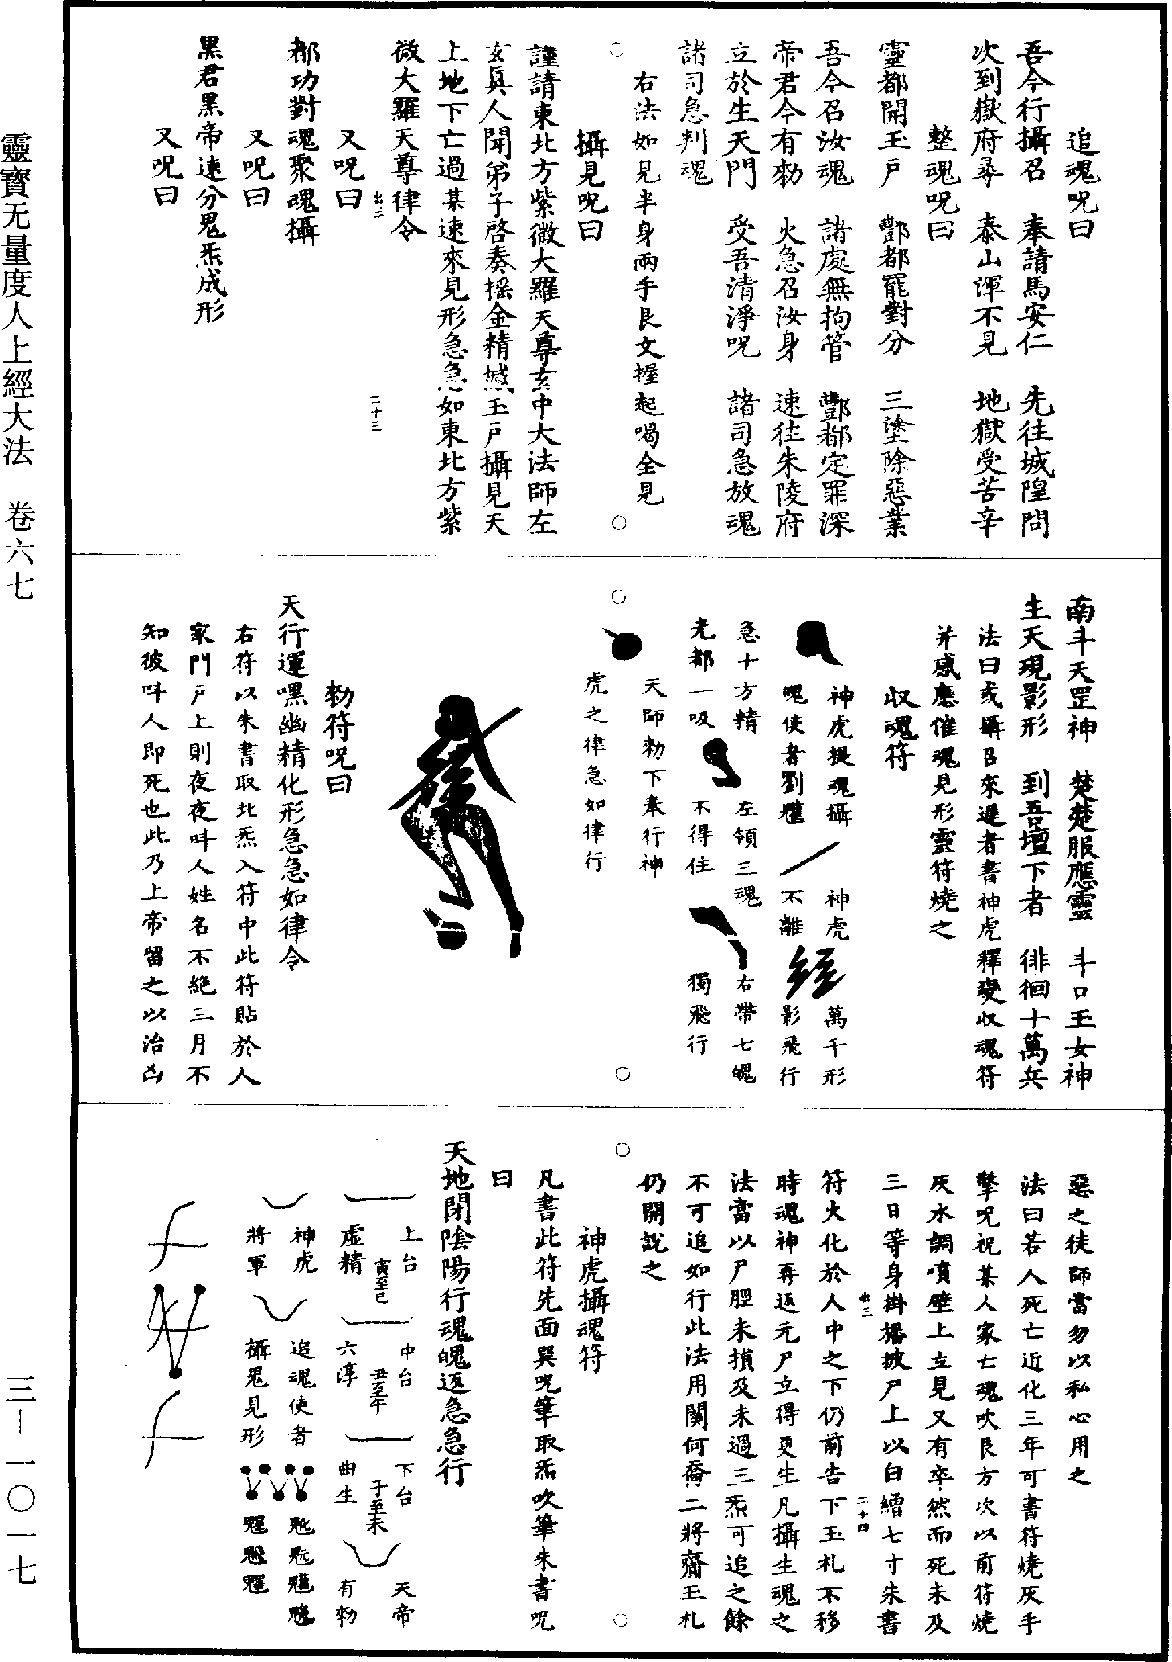 靈寶无量度人上經大法　卷六七
三—一〇一七
追魂呪曰
吾今行攝召　奉請馬安仁　先往城隍問
次到獄府尋　泰山渾不見　地獄受苦辛
整魂呪曰
靈都開玉戶　酆都罷對分　三塗除惡業
吾今召汝魂　諸處無拘管　酆都定罪深
帝君今有勑　火急召汝身　速往朱陵府
立於生天門　受吾清淨呪　諸司急放魂
諸司急判魂
右法如見半身兩手艮文握起喝全見
攝見呪曰
謹請東北方紫微大羅天尊玄中大法師左
玄真人聞弟子啓奏搖金精撼玉戶攝見天
上地下亡過某速來見形急急如東北方紫
微大羅天尊律令
二十三
又呪曰
都功對魂聚魂攝
又呪曰
黑君黑帝速分鬼炁成形
又呪曰
南斗天罡神　楚楚服應靈　斗口玉女神
生天現影形　到吾壇下者　徘徊十萬兵
法曰或攝召來遲者書神虎釋變收魂符
并感應催魂見形靈符燒之
收魂符
神虎捉魂攝　神虎　萬千形
魄使者劉　不離　影飛行
急十方精　左領三魂　右帶七魄
光都一吸　不得住　獨飛行
天師勑下奉行神
虎之律急如律行
勑符呪曰
天行運嘿幽精化形急急如律令
右符以朱書取北炁入符中此符貼於人
家門戶上則夜夜呌人姓名不絕三月不
知彼呌人即死也此乃上帝留之以治凶
惡之徒師當勿以私心用之
法曰若人死亡近化三年可書符燒灰手
擎呪祝某人家亡魂吹艮方次以前符燒
灰水調噴壁上立見又有卒然而死未及
三日等身掛播披尸上以白繒七寸朱書
符火化於人中之下仍前告下玉札不移
二十四
時魂神再返元尸立得更生凡攝生魂之
法當以尸脛未損及未過三炁可追之餘
不可追如行此法用關何喬二將齋玉札
仍開說之
神虎攝魂符
凡書此符先面巽呪筆取炁吹筆朱書呪
曰
天地閉陰陽行魂魄返急急行
上台　寅至巳　中台　丑至午　下台　子至未　天帝
虛精　六淳　曲生　有勑
神虎　追魂使者
將軍　攝鬼見形